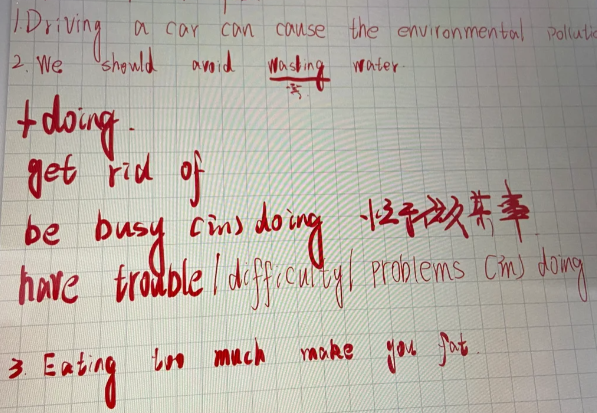 1. Driving a car can cause the environmental pollutio
2. We should avoid wasting water.
+doing.
get rid of
be busy (in) doing 忙于做某事
have trouble / difficulty / problems (in) doing
3. Eating too much make you fat.